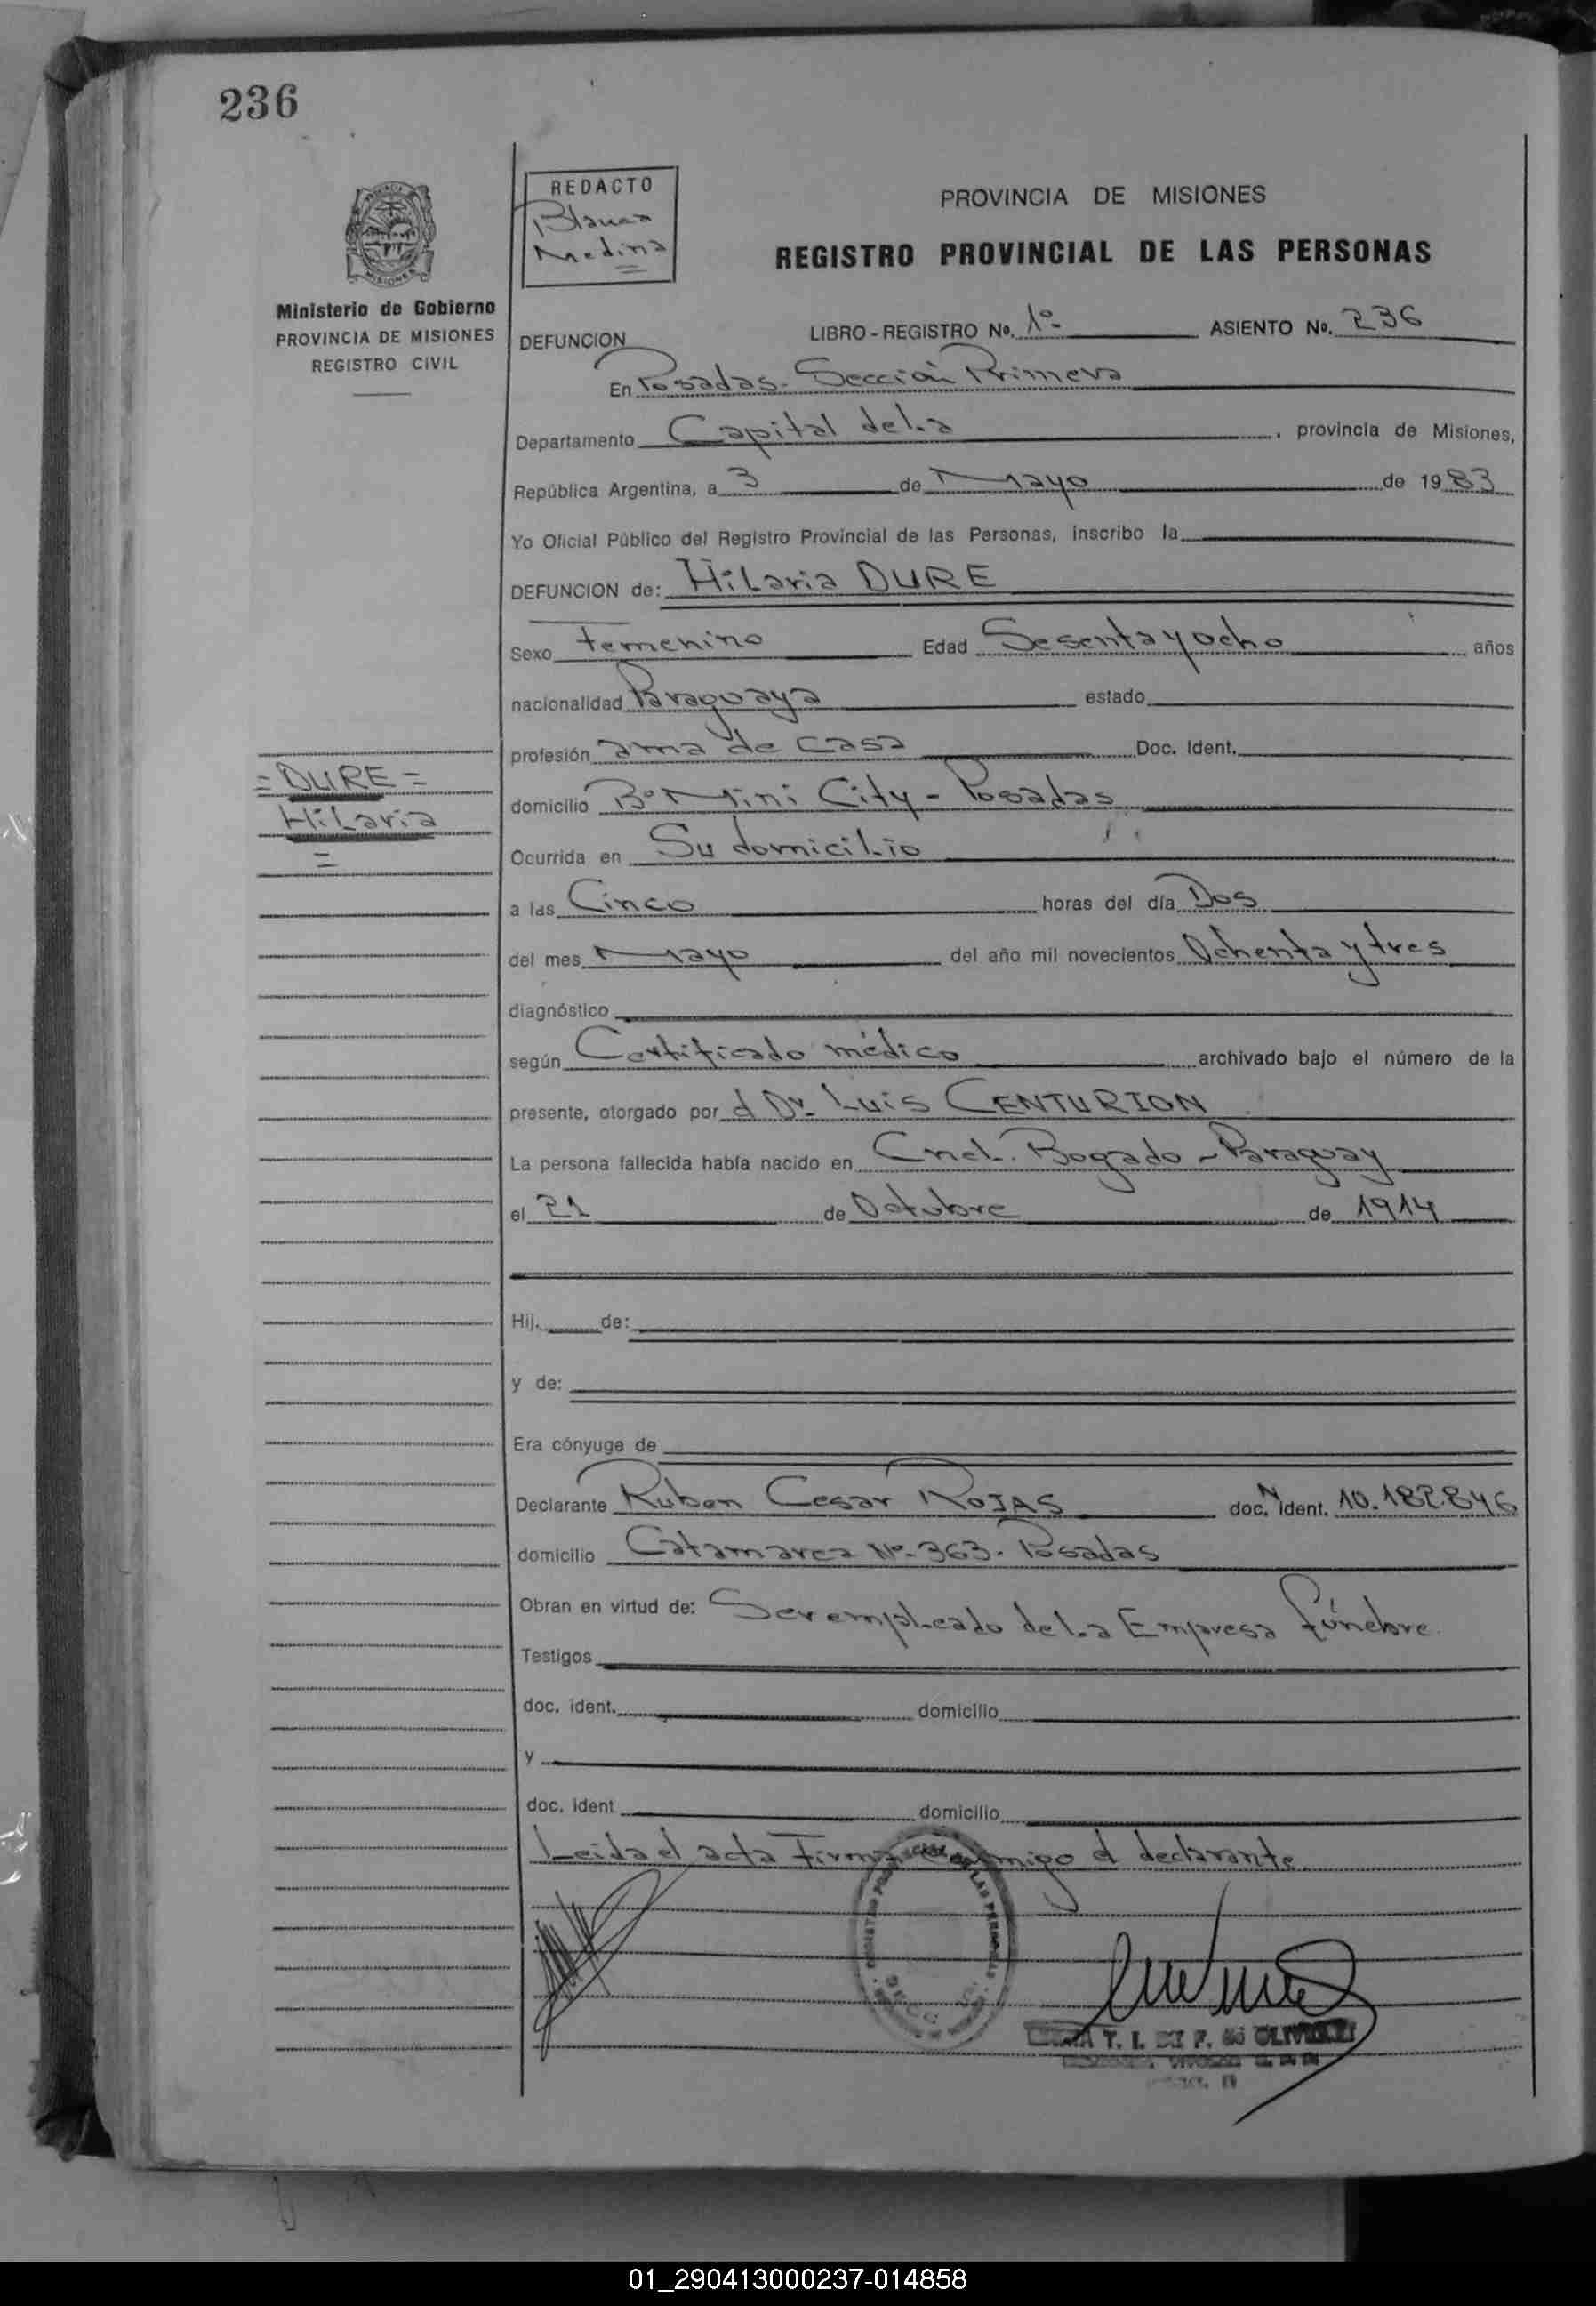 236
REDACTO
Blanca
Medina
PROVINCIA DE MISIONES
REGISTRO PROVINCIAL DE LAS PERSONAS
Ministerio de Gobierno
PROVINCIA DE MISIONES
REGISTRO CIVIL
DEFUNCION LIBRO-REGISTRO No. 1º ASIENTO No. 236
En Posadas. Sección Primera
Departamento Capital de la , provincia de Misiones,
República Argentina, a 3 de Mayo de 1983
Yo Oficial Público del Registro Provincial de las Personas, inscribo la
DEFUNCION de: Hilaria DURE
Sexo Femenino Edad Sesenta y ocho años
nacionalidad Paraguaya estado
profesión ama de casa Doc. Ident.
= DURE =
Hilaria
=
domicilio Bº Mini City - Posadas
Ocurrida en Su domicilio
a las Cinco horas del día Dos
del mes Mayo del año mil novecientos Ochenta y tres
diagnóstico
según Certificado médico archivado bajo el número de la
presente, otorgado por el Dr. Luis CENTURION
La persona fallecida había nacido en Cnel. Bogado - Paraguay
el 21 de Octubre de 1914
Hij. de:
y de:
Era cónyuge de
Declarante Ruben Cesar ROJAS doc. N ident. 10.182.846
domicilio Catamarca Nº 363. Posadas
Obran en virtud de: Ser empleado de la Empresa fúnebre.
Testigos
doc. ident. domicilio
y
doc. ident domicilio
Leida el acta Firma conmigo el declarante.
T. I. DE F. de
01_290413000237-014858